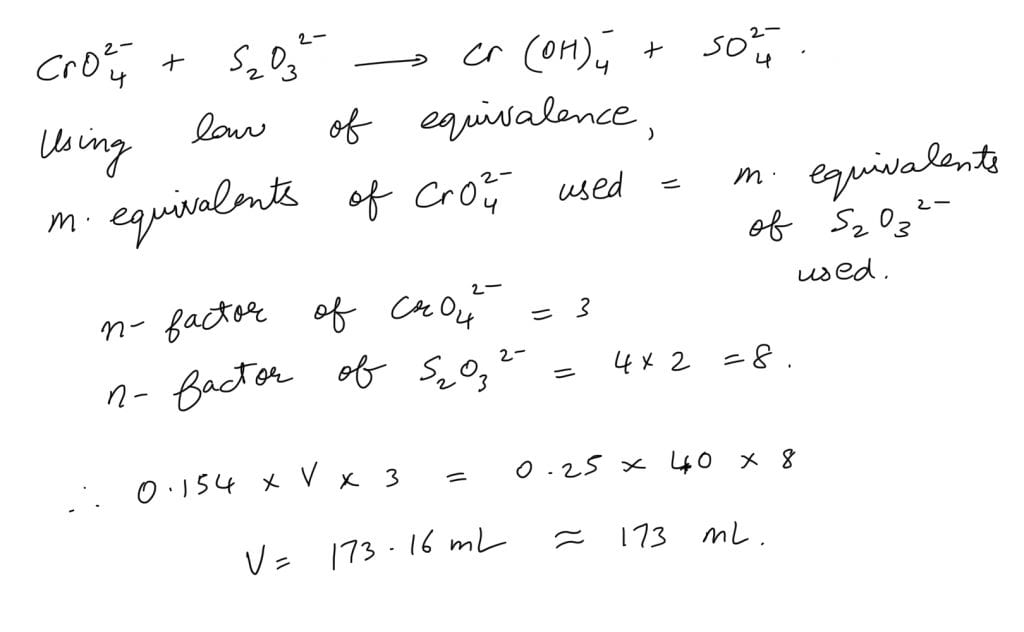 CrO₄²⁻ + S₂O₃²⁻ ⟶ Cr (OH)₄⁻ + SO₄²⁻ .
Using law of equivalence,
m. equivalents of CrO₄²⁻ used = m. equivalents
of S₂O₃²⁻
used.
n- factor of CrO₄²⁻ = 3
n- factor of S₂O₃²⁻ = 4 × 2 = 8 .
∴ 0.154 × V × 3 = 0.25 × 40 × 8
V = 173.16 mL ≈ 173 mL .